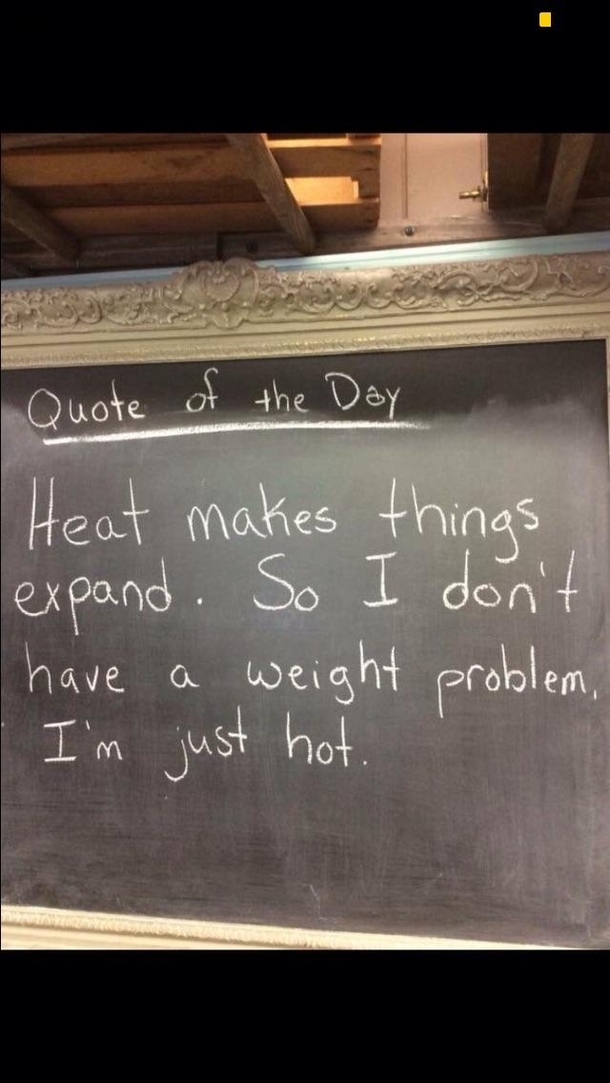 Quote of the Day
Heat makes things
expand. So I don't
have a weight problem,
I'm just hot.